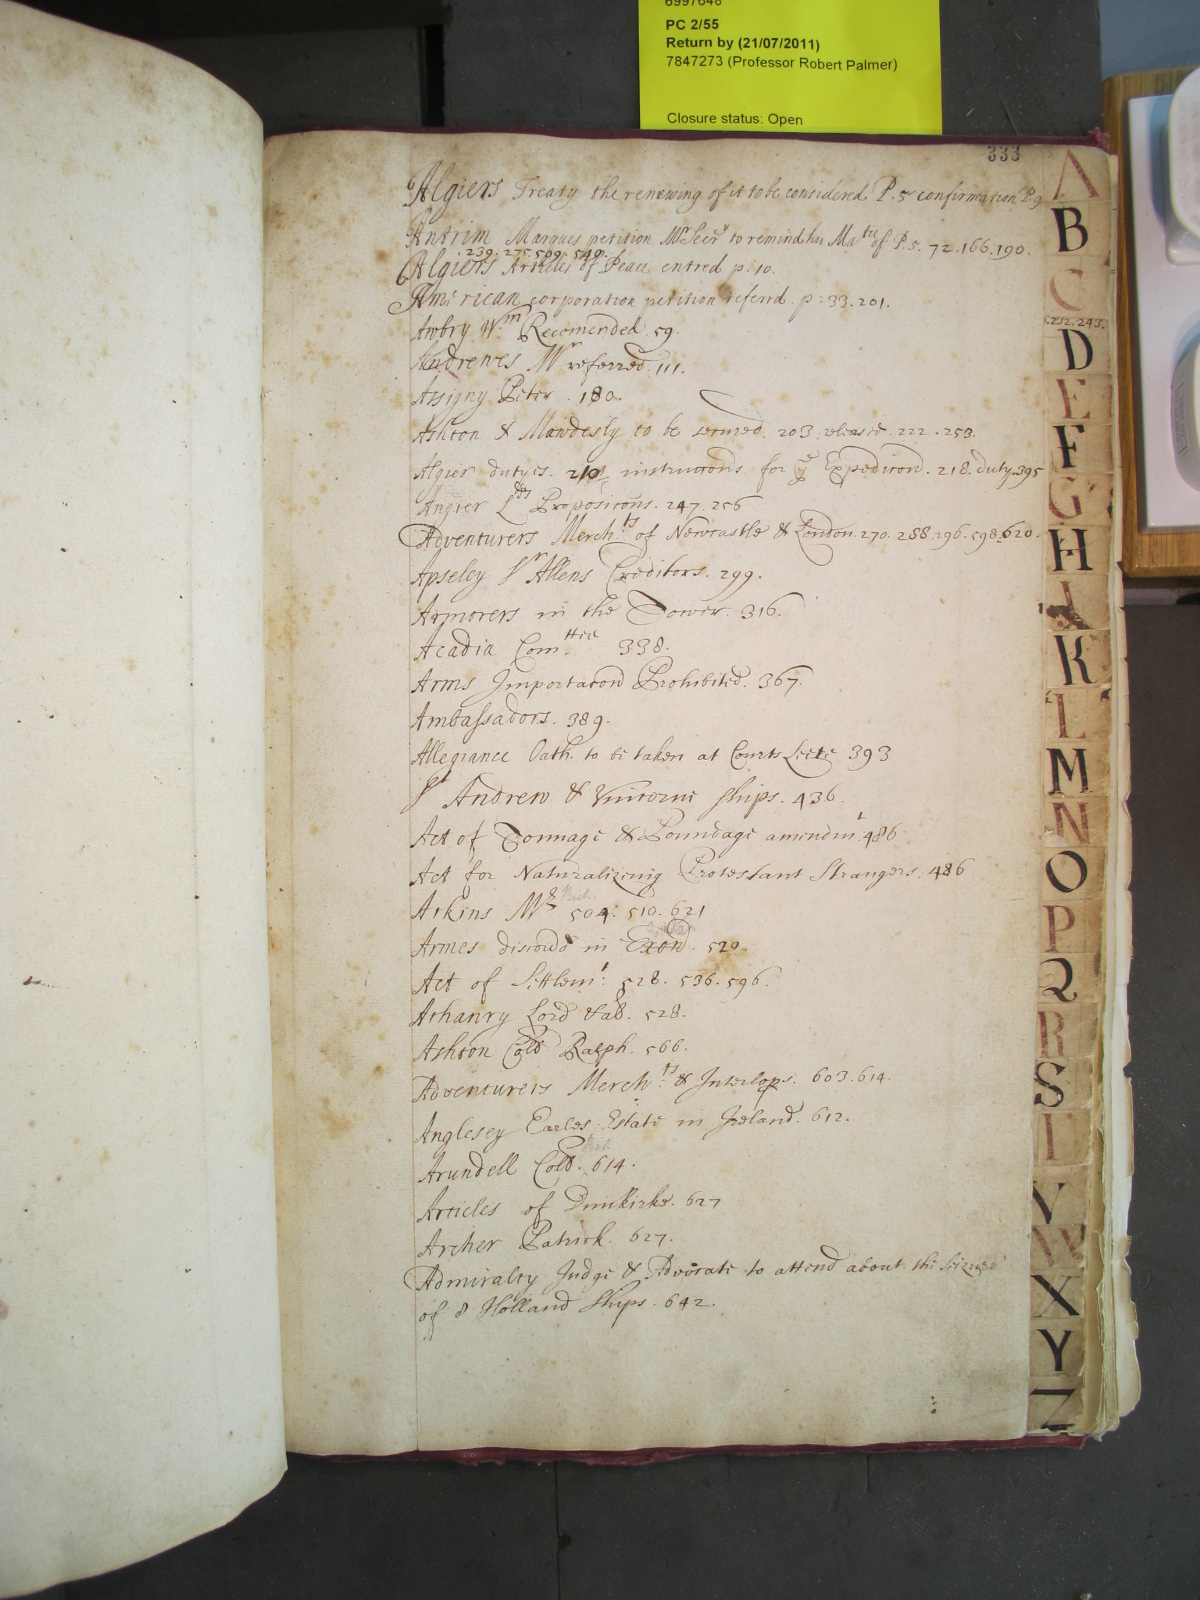 6997648
PC 2/55
Return by (21/07/2011)
7847273 (Professor Robert Palmer)
Closure status: Open
333
Algiers Treaty the renewing of it to be considered P. 5 confirmation P. 9
Antrim Marques petition Mr Secry to remind his Matie of P. 5. 72. 166. 190.
. 239. 275. 509. 540.
Algiers Articles of Peace entred p. 10.
American corporation petition referrd. p: 33. 201.
.232. 243.
Awbry Wm Recomended. 59.
Andrewes Mr referred. 111.
Assigny Peter. 180.
Ashton & Mawdesly to be secured. 203. released. 222. 253.
Algier dutyes. 210. instructions for ye Expedicon. 218. duty. 395
Angier Lds Proposicons. 247. 256
Adventurers Merchts of Newcastle & London. 270. 288. 296. 598. 620.
Apseley Sr Allens Creditors. 299.
Armorers in the Tower. 316.
Acadia Comttee 338.
Arms Importacon Prohibited. 367.
Ambassadors. 389.
Allegiance Oath. to be taken at Courts Leete 393
St Andrew & Unicorne ships. 436.
Act of Tonnage & Poundage amendmt. 486
Act for Naturalizeing Protestant Strangers. 486
Atkins Mr 504. 510. 621
Armes discovd in Exon. 520.
Act of Settlemt. 528. 536. 596.
Athanry Lord Vab. 528.
Ashton Coll Ralph. 566.
Adventurers Merchts & Interlops. 603. 614.
Anglesey Earles Estate in Ireland. 612.
Arundell Coll. 614.
Articles of Dunkirke. 627
Archer Patrick. 627.
Admiralty Judge & Advocate to attend about the
of 8 Holland ships. 642.
A
B
C
D
E
F
G
H
I
K
L
M
N
O
P
Q
R
S
T
V
W
X
Y
Z